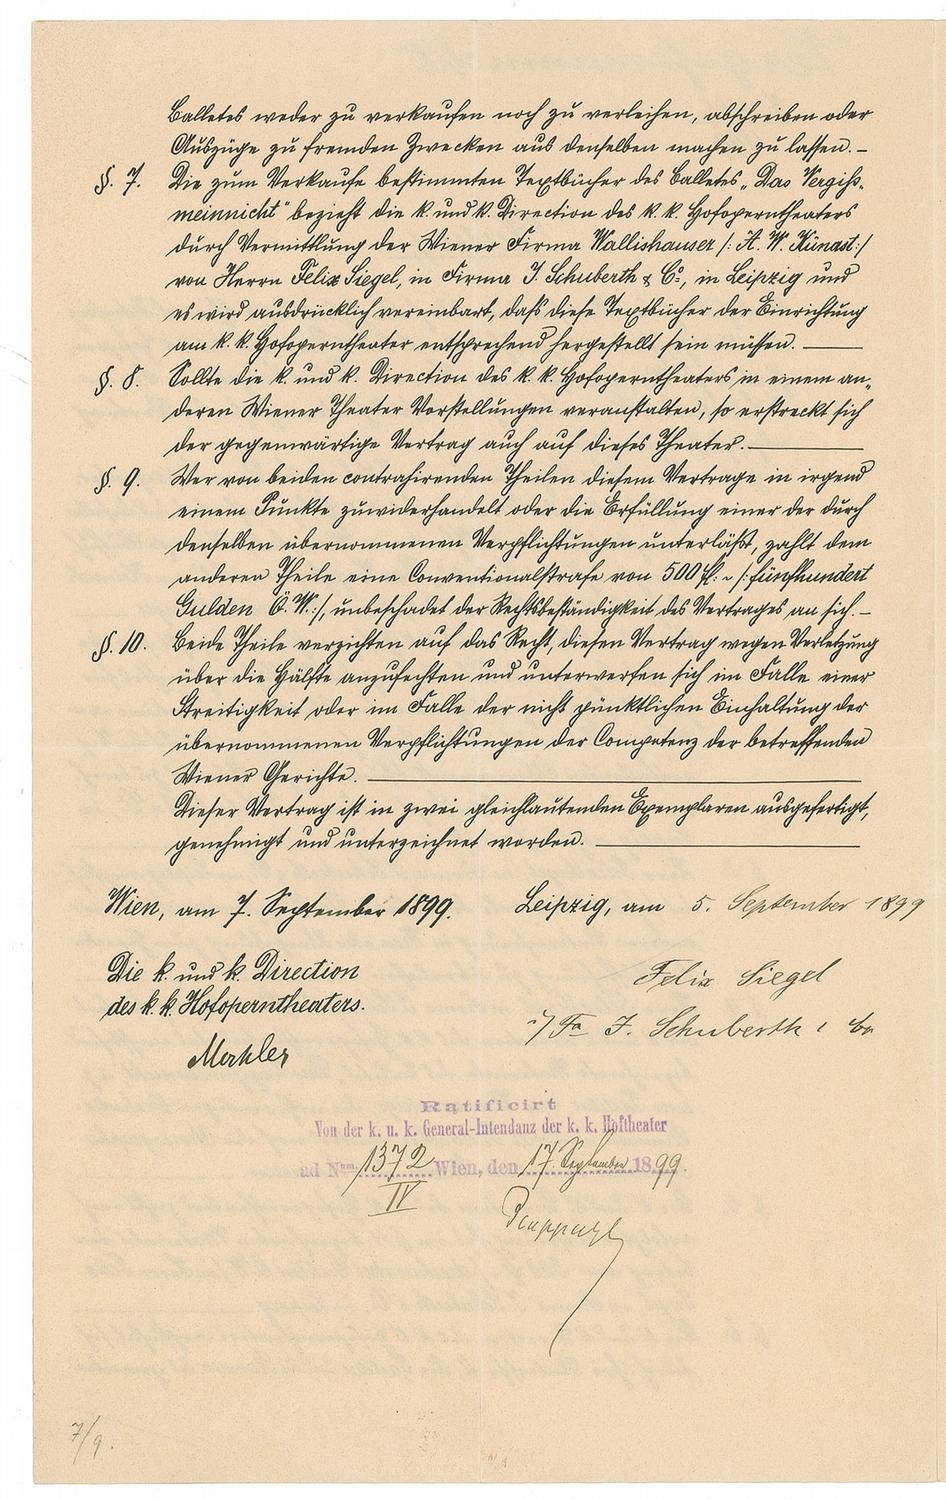 Balletes weder zu verkaufen noch zu verleihen, abschreiben oder
Auszüge zu fremden Zwecken aus denselben machen zu lassen. –
§. 7. Die zum Verkaufe bestimmten Textbücher des Balletes „Das Vergiß-
meinnicht" bezieht die k. und k. Direction des k. k. Hofoperntheaters
durch Vermittlung der Wiener Firma Wallishausser /: A. W. Künast :/
von Herrn Felix Siegel, in Firma J. Schuberth & Co., in Leipzig und
es wird ausdrücklich vereinbart, daß diese Textbücher der Einrichtung
am k. k. Hofoperntheater entsprechend hergestellt sein müssen. —
§. 8. Sollte die k. und k. Direction des k. k. Hofoperntheaters in einem an„
deren Wiener Theater Vorstellungen veranstalten, so erstreckt sich
der gegenwärtige Vertrag auch auf dieses Theater. —
§. 9. Wer von beiden contrahirenden Theilen diesem Vertrage in irgend
einem Punkte zuwiderhandelt oder die Erfüllung einer der durch
denselben übernommenen Verpflichtungen unterläßt, zahlt dem
anderen Theile eine Conventionalstrafe von 500 fl: ~ /: fünfhundert
Gulden Ö. W. :/, unbeschadet der Rechtsbeständigkeit des Vertrages an sich. –
§. 10. Beide Theile verzichten auf das Recht, diesen Vertrag wegen Verletzung
über die Hälfte anzufechten und unterwerfen sich im Falle einer
Streitigkeit oder im Falle der nicht pünktlichen Einhaltung der
übernommenen Verpflichtungen der Competenz der betreffenden
Wiener Gerichte. —
Dieser Vertrag ist in zwei gleichlautenden Exemplaren ausgefertigt,
genehmigt und unterzeichnet worden. —
Wien, am 7. September 1899.
Die k. und k. Direction
des k. k. Hofoperntheaters.
Mahler
Leipzig, am 5. September 1899
Felix Siegel
i/ Fa J. Schuberth & Co
Ratificirt
Von der k. u. k. General-Intendanz der k. k. Hoftheater
ad Num. 1372/IV Wien, den 17. September 1899.
7/9.